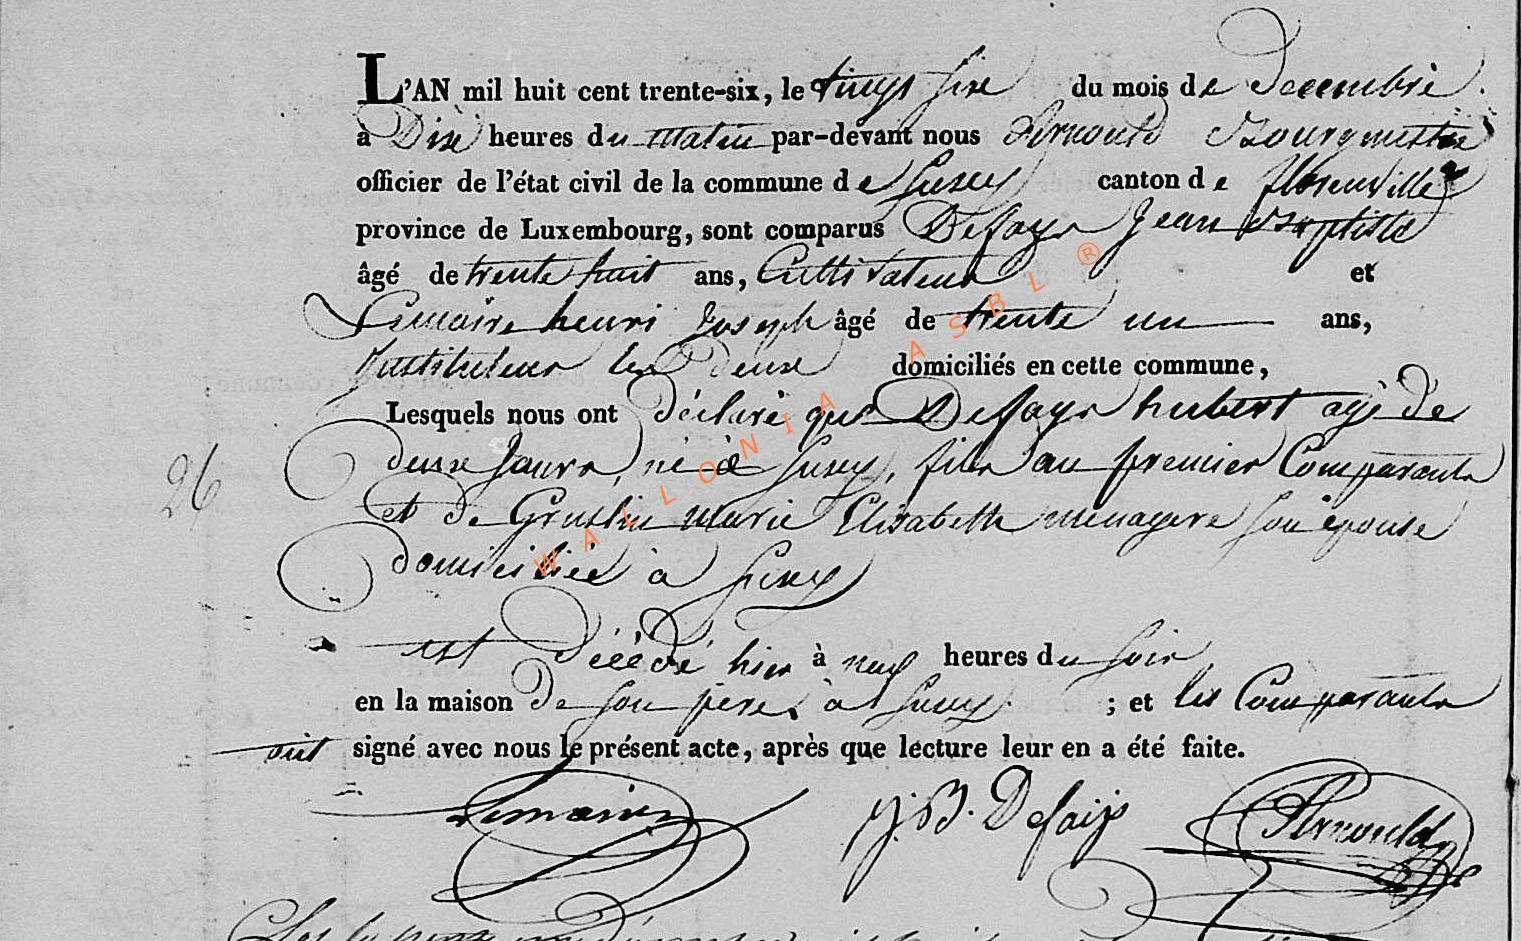 L'AN mil huit cent trente-six, le vingt six du mois de Decembre
à Dix heures du matin par-devant nous Arnould Bourgmestre
officier de l'état civil de la commune de Suxy canton de florenville
province de Luxembourg, sont comparus Defays Jean Baptiste
âgé de trente huit ans, Cultivateur et
Lemaire henri Joseph âgé de trente un ans,
Instituteur les Deux domiciliés en cette commune,
Lesquels nous ont Déclaré que Defays hubert agé De
deux Jours, né à Suxy, fils au premier Comparants
26
et De Gruslin Marie Elisabette menagere son épouse
domiciliée à Suxy
est Décédé hier à neuf heures du soir
en la maison De son père à Suxy ; et les Comparants
ont signé avec nous le présent acte, après que lecture leur en a été faite.
Lemaire J. B. Defaijs Arnould
WALLONIA ASBL ®